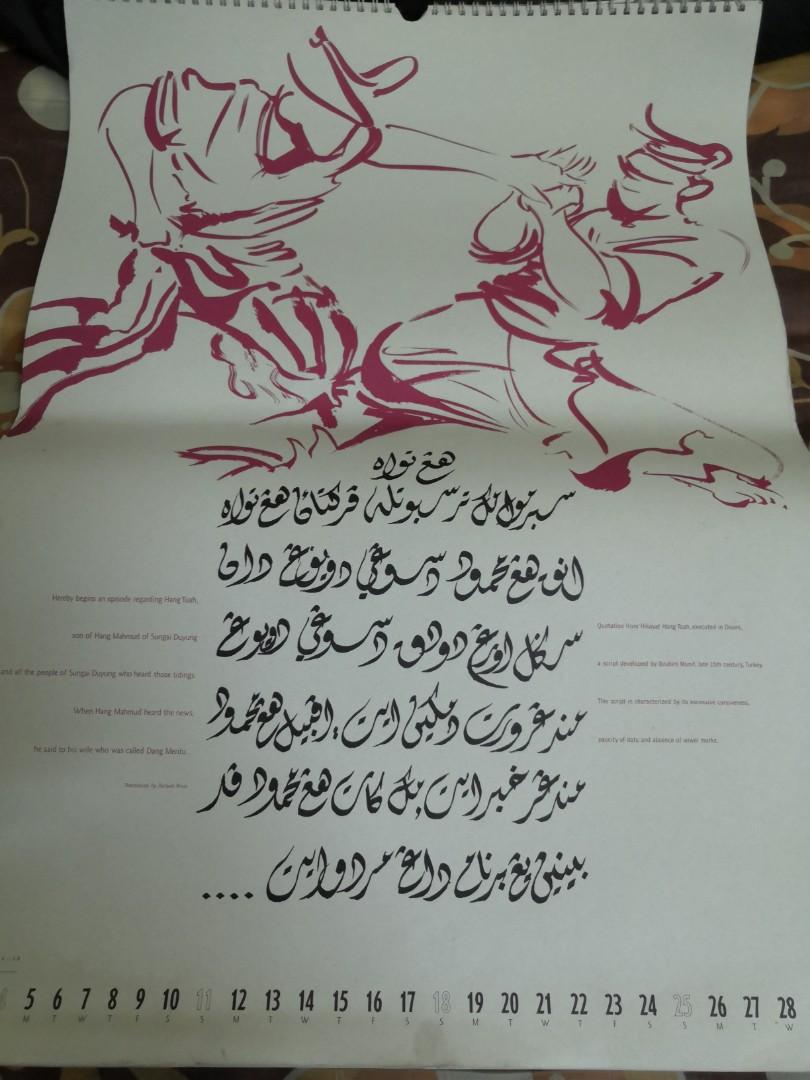 هڠ تواه
سبرمول مک ترسبوتله ڤرکتاءن هڠ تواه
انق هڠ محمود دسوڠي دويوڠ دان
سکل اورڠ دودق دسوڠي دويوڠ
مندڠر ورت دمکين ايت. اڤبيل هڠ محمود
مندڠر خبر ايت مک کات هڠ محمود ڤد
بينين يڠ برنام داڠ مردو ايت ....
Hereby begins an episode regarding Hang Tuah,
son of Hang Mahmud of Sungai Duyung
and all the people of Sungai Duyung who heard those tidings.
When Hang Mahmud heard the news,
he said to his wife who was called Dang Merdu...
Quotation from Hikayat Hang Tuah, executed in Diwani,
a script developed by Ibrahim Munif, late 15th century, Turkey.
This script is characterized by its excessive cursiveness,
paucity of dots and absence of vowel marks.
5 6 7 8 9 10 11 12 13 14 15 16 17 18 19 20 21 22 23 24 25 26 27 28
M T W T F S S M T W T F S S M T W T F S S M T W